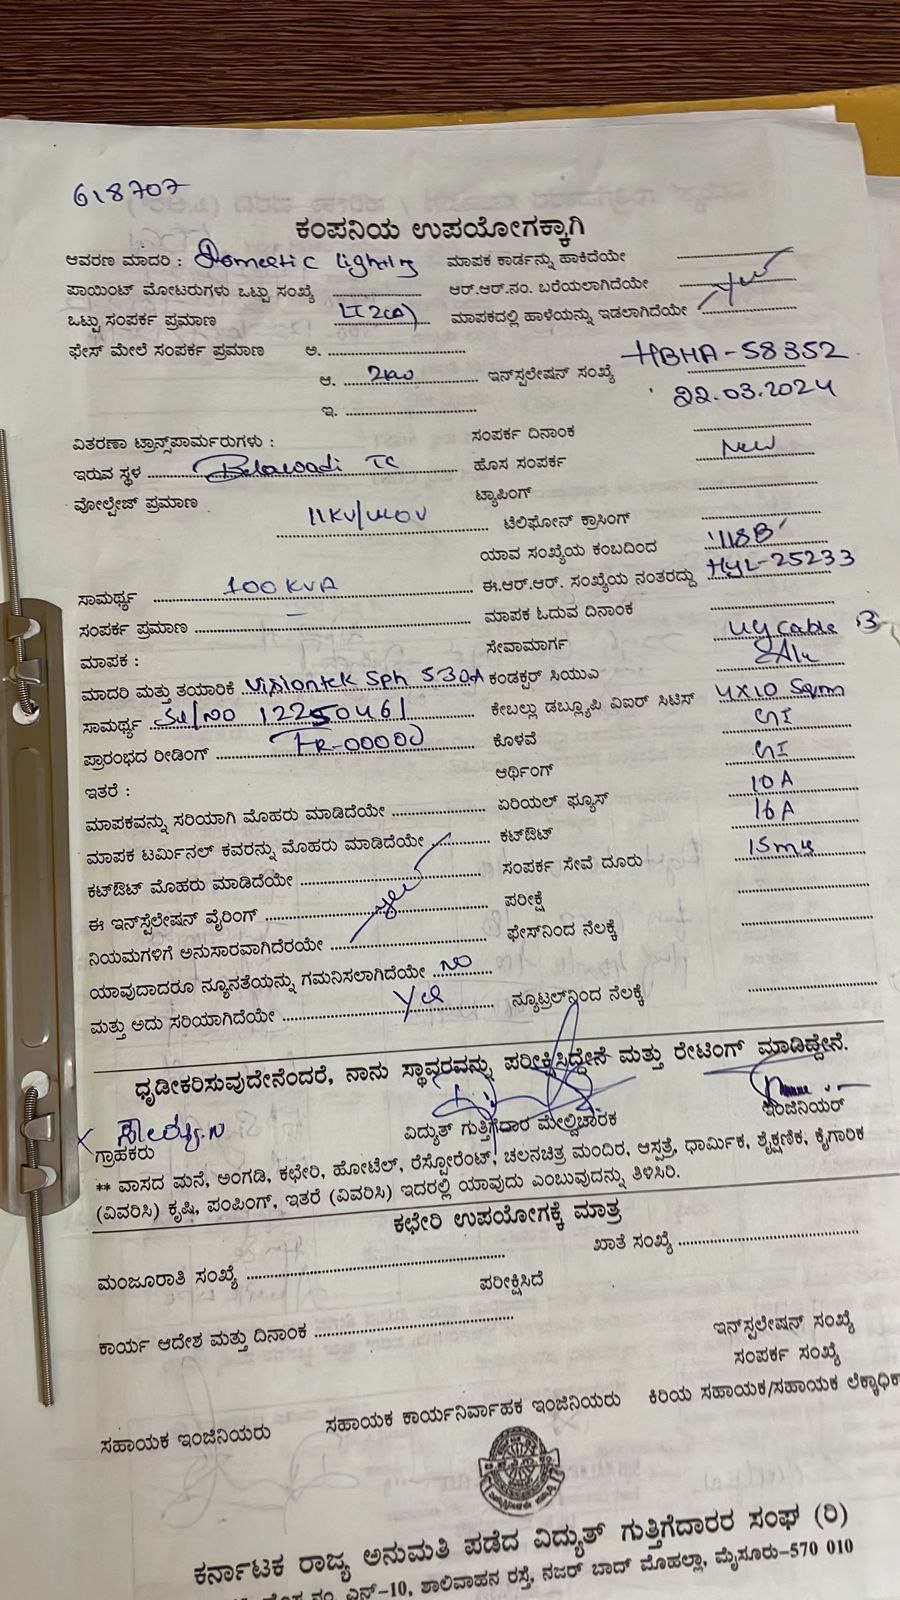 618707
ಕಂಪನಿಯ ಉಪಯೋಗಕ್ಕಾಗಿ
ಆವರಣ ಮಾದರಿ : Domestic lighting ಮಾಪಕ ಕಾರ್ಡನ್ನು ಹಾಕಿದೆಯೇ
ಪಾಯಿಂಟ್ ಮೋಟರುಗಳು ಒಟ್ಟು ಸಂಖ್ಯೆ ಆರ್.ಆರ್.ನಂ. ಬರೆಯಲಾಗಿದೆಯೇ
ಒಟ್ಟು ಸಂಪರ್ಕ ಪ್ರಮಾಣ LT2(a) ಮಾಪಕದಲ್ಲಿ ಹಾಳೆಯನ್ನು ಇಡಲಾಗಿದೆಯೇ
ಫೇಸ್ ಮೇಲೆ ಸಂಪರ್ಕ ಪ್ರಮಾಣ ಅ.
ಆ. 2kw ಇನ್‌ಸ್ಪಲೇಷನ್ ಸಂಖ್ಯೆ HBHA-58352
ಇ. 22.03.2024
ವಿತರಣಾ ಟ್ರಾನ್ಸ್‌ಪಾರ್ಮರುಗಳು : ಸಂಪರ್ಕ ದಿನಾಂಕ
ಇರುವ ಸ್ಥಳ Belawadi TC ಹೊಸ ಸಂಪರ್ಕ New
ವೋಲ್ಟೇಜ್ ಪ್ರಮಾಣ 11KV/440V ಟ್ಯಾಪಿಂಗ್
ಟೆಲಿಫೋನ್ ಕ್ರಾಸಿಂಗ್
ಯಾವ ಸಂಖ್ಯೆಯ ಕಂಬದಿಂದ '118B'
ಸಾಮರ್ಥ್ಯ 100KVA ಈ.ಆರ್.ಆರ್. ಸಂಖ್ಯೆಯ ನಂತರದ್ದು HYL-25233
ಸಂಪರ್ಕ ಪ್ರಮಾಣ – ಮಾಪಕ ಓದುವ ದಿನಾಂಕ
ಮಾಪಕ : ಸೇವಾಮಾರ್ಗ UG Cable
ಮಾದರಿ ಮತ್ತು ತಯಾರಿಕೆ Visiontek Sph 5-30A ಕಂಡಕ್ಟರ್ ಸಿಯುಎ
ಸಾಮರ್ಥ್ಯ Sl/NO 12250461 ಕೇಬಲ್ಲು ಡಬ್ಲ್ಯೂಪಿ ವಿಐರ್ ಸಿಟಿಸ್ 4X10 Sqmm
ಪ್ರಾರಂಭದ ರೀಡಿಂಗ್ FR-00000 ಕೊಳವೆ GI
ಇತರೆ : ಆರ್ಥಿಂಗ್ GI
ಮಾಪಕವನ್ನು ಸರಿಯಾಗಿ ಮೊಹರು ಮಾಡಿದೆಯೇ ಏರಿಯಲ್ ಫ್ಯೂಸ್ 10A
ಮಾಪಕ ಟರ್ಮಿನಲ್ ಕವರನ್ನು ಮೊಹರು ಮಾಡಿದೆಯೇ ಕಟ್‌ಔಟ್ 16A
ಕಟ್‌ಔಟ್ ಮೊಹರು ಮಾಡಿದೆಯೇ ಸಂಪರ್ಕ ಸೇವೆ ದೂರು 15mts
ಈ ಇನ್‌ಸ್ಪೆಲೇಷನ್ ವೈರಿಂಗ್ ಪರೀಕ್ಷೆ
ನಿಯಮಗಳಿಗೆ ಅನುಸಾರವಾಗಿದೆರಯೇ ಫೇಸ್‌ನಿಂದ ನೆಲಕ್ಕೆ
ಯಾವುದಾದರೂ ನ್ಯೂನತೆಯನ್ನು ಗಮನಿಸಲಾಗಿದೆಯೇ NO
ಮತ್ತು ಅದು ಸರಿಯಾಗಿದೆಯೇ Yes ನ್ಯೂಟ್ರಲ್‌ನಿಂದ ನೆಲಕ್ಕೆ
ಧೃಡೀಕರಿಸುವುದೇನೆಂದರೆ, ನಾನು ಸ್ಥಾವರವನ್ನು ಪರೀಕ್ಷಿಸಿದ್ದೇನೆ ಮತ್ತು ರೇಟಿಂಗ್ ಮಾಡಿದ್ದೇನೆ.
ಗ್ರಾಹಕರು ವಿದ್ಯುತ್ ಗುತ್ತಿಗೆದಾರ ಮೇಲ್ವಿಚಾರಕ ಇಂಜಿನಿಯರ್
** ವಾಸದ ಮನೆ, ಅಂಗಡಿ, ಕಛೇರಿ, ಹೋಟೆಲ್, ರೆಸ್ಟೋರೆಂಟ್, ಚಲನಚಿತ್ರ ಮಂದಿರ, ಆಸ್ಪತ್ರೆ, ಧಾರ್ಮಿಕ, ಶೈಕ್ಷಣಿಕ, ಕೈಗಾರಿಕ
(ವಿವರಿಸಿ) ಕೃಷಿ, ಪಂಪಿಂಗ್, ಇತರೆ (ವಿವರಿಸಿ) ಇದರಲ್ಲಿ ಯಾವುದು ಎಂಬುವುದನ್ನು ತಿಳಿಸಿರಿ.
ಕಛೇರಿ ಉಪಯೋಗಕ್ಕೆ ಮಾತ್ರ
ಮಂಜೂರಾತಿ ಸಂಖ್ಯೆ ಖಾತೆ ಸಂಖ್ಯೆ
ಪರೀಕ್ಷಿಸಿದೆ
ಕಾರ್ಯ ಆದೇಶ ಮತ್ತು ದಿನಾಂಕ ಇನ್‌ಸ್ಪಲೇಷನ್ ಸಂಖ್ಯೆ
ಸಂಪರ್ಕ ಸಂಖ್ಯೆ
ಸಹಾಯಕ ಇಂಜಿನಿಯರು ಸಹಾಯಕ ಕಾರ್ಯನಿರ್ವಾಹಕ ಇಂಜಿನಿಯರು ಕಿರಿಯ ಸಹಾಯಕ/ಸಹಾಯಕ
ಕರ್ನಾಟಕ ರಾಜ್ಯ ಅನುಮತಿ ಪಡೆದ ವಿದ್ಯುತ್ ಗುತ್ತಿಗೆದಾರರ ಸಂಘ (ರಿ)
ನಂ. ಎನ್-10, ಶಾಲಿವಾಹನ ರಸ್ತೆ, ನಜರ್ ಬಾದ್ ಮೊಹಲ್ಲಾ, ಮೈಸೂರು-570 010